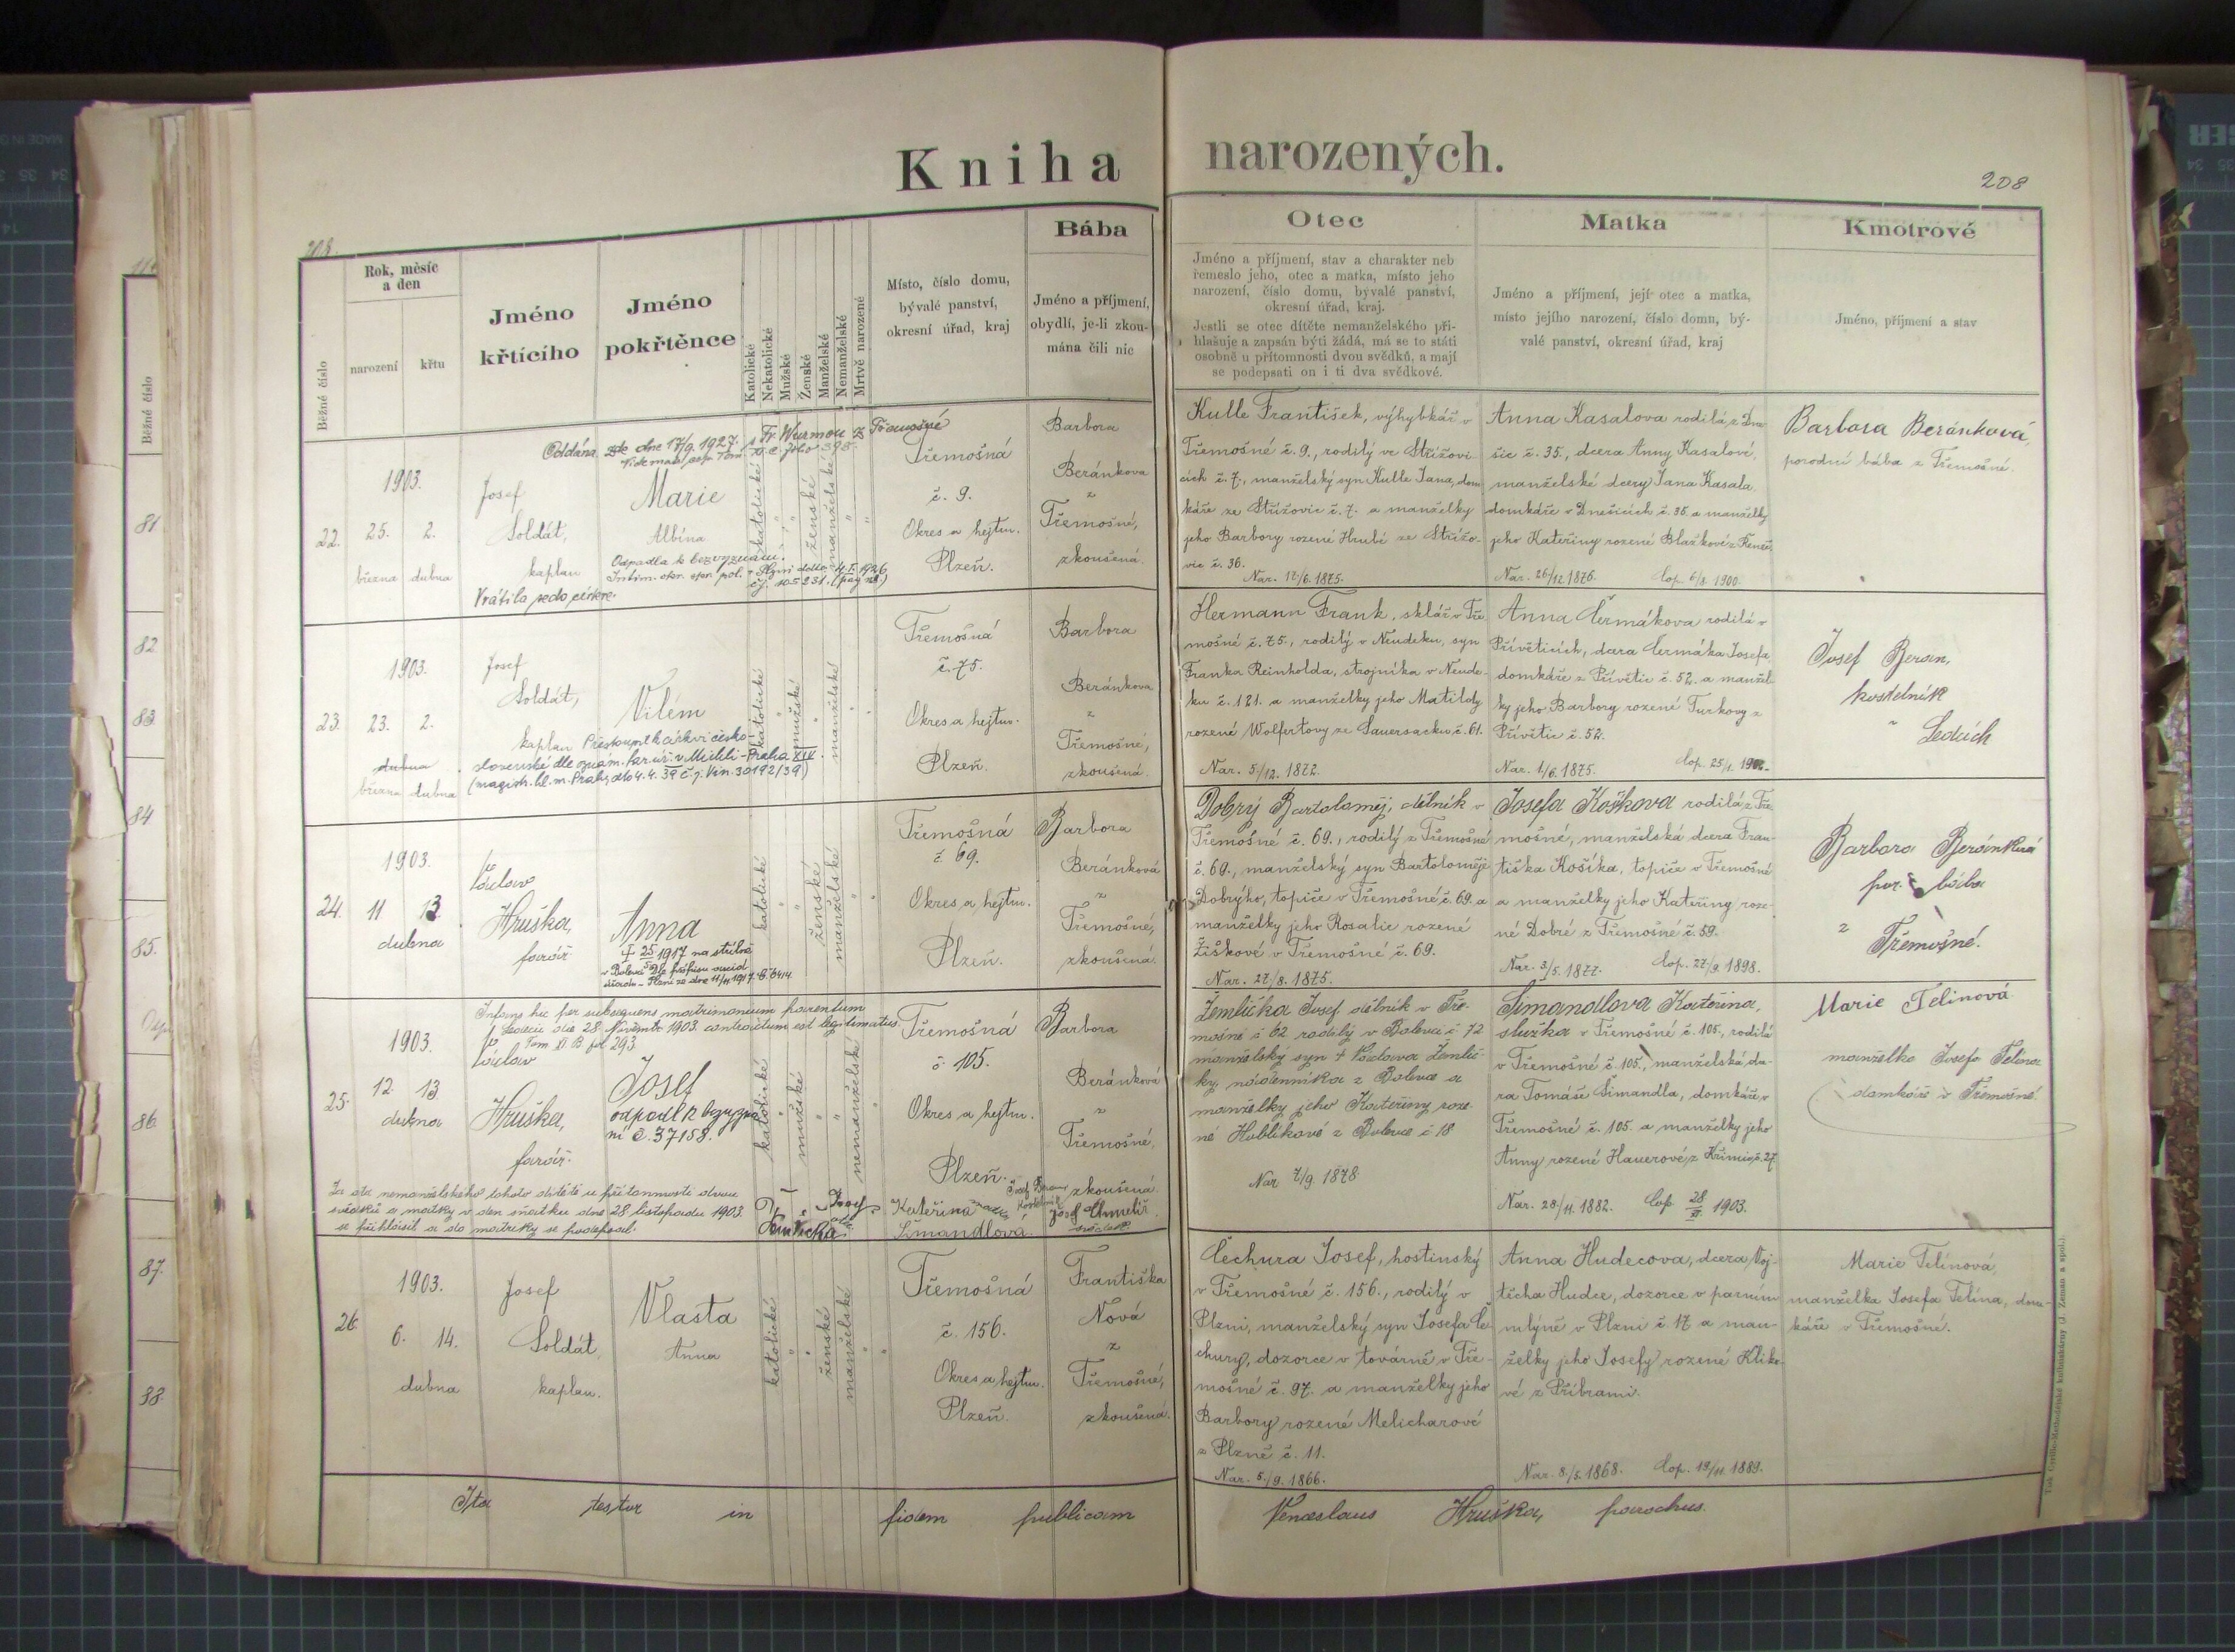 Kniha narozených.
208
208.
Běžné číslo
Rok, měsíc
a den
narození
křtu
Jméno
křtícího
Jméno
pokřtěnce
Katolické
Nekatolické
Mužské
Ženské
Manželské
Nemanželské
Mrtvě narozené
Místo, číslo domu,
bývalé panství,
okresní úřad, kraj
Bába
Jméno a příjmení,
obydlí, je-li zkou-
mána čili nic
Otec
Jméno a příjmení, stav a charakter neb
řemeslo jeho, otec a matka, místo jeho
narození, číslo domu, bývalé panství,
okresní úřad, kraj.
Jestli se otec dítěte nemanželského při-
hlašuje a zapsán býti žádá, má se to státi
osobně u přítomnosti dvou svědků, a mají
se podepsati on i ti dva svědkové.
Matka
Jméno a příjmení, její otec a matka,
místo jejího narození, číslo domu, bý-
valé panství, okresní úřad, kraj
Kmotrové
Jméno, příjmení a stav
Běžné číslo
81
82
83
84
85.
86.
87.
88.
Oddána zde dne 17/9. 1927. s Fr. Wurmou z Třemošné
22.
1903.
25. 2.
března dubna
Josef
Soldát,
kaplan
Marie
Albína
Odpadla k bezvyznání.
Vrátila se do církve.
katolické
ženské
manželské
Třemošná
č. 9.
Okres a hejtm.
Plzeň.
Barbora
Beránkova
z
Třemošné,
zkoušená.
Kulle František, výhybkář v
Třemošné č. 9., rodilý ve Střížovi-
cích č. 7., manželský syn Kulle Jana, dom-
káře ze Střížovic č. 7. a manželky
jeho Barbory rozené Hrubé ze Střížo-
vic č. 36.
Nar. 17/6. 1875.
Anna Kasalova rodilá z Dne-
šic č. 35., dcera Anny Kasalové,
manželské dcery Jana Kasala,
domkáře v Dnešicích č. 35. a manželky
jeho Kateřiny rozené Blažkové z
Nar. 26/12. 1876. Cop. 6/8. 1900.
Barbora Beránková,
porodní bába z Třemošné.
23.
1903.
23. 2.
dubna
března dubna
Josef
Soldát,
kaplan
Vilém
Přestoupil k církvi česko-
slovenské dle oznam. far. úř. v Michli - Praha XIV.
(magistr. hl. m. Prahy dto 4. 4. 39 č. j. Vin. 30192/39)
katolické
mužské
manželské
Třemošná
č. 75.
Okres a hejtm.
Plzeň.
Barbora
Beránkova
z
Třemošné,
zkoušená.
Hermann Frank, sklář v Tře-
mošné č. 75., rodilý v Neudeku, syn
Franka Reinholda, strojníka v Neude-
ku č. 121. a manželky jeho Matildy
rozené Wolfertovy ze Sauersacku č. 61.
Nar. 5./12. 1872.
Anna Čermákova rodilá v
Přívěticích, dcera Čermáka Josefa,
domkáře z Přívětic č. 52. a manžel-
ky jeho Barbory rozené Turkovy z
Přívětic č. 52.
Nar. 1/6. 1875. Cop. 25/1. 1902.
Josef Beran,
kostelník
v Ledcích
24.
1903.
11 13.
dubna
Václav
Hruška,
farář.
Anna
katolické
ženské
manželské
Třemošná
č. 69.
Okres a hejtm.
Plzeň.
Barbora
Beránková
z
Třemošné,
zkoušená.
Dobrý Bartoloměj, dělník v
Třemošné č. 69., rodilý z Třemošné
č. 69., manželský syn Bartoloměje
Dobrýho, topiče v Třemošné č. 69. a
manželky jeho Rosalie rozené
Žiškové v Třemošné č. 69.
Nar. 27/8. 1875.
Josefa Košíkova rodilá z Tře-
mošné, manželská dcera Fran-
tiška Košíka, topiče v Třemošné
a manželky jeho Kateřiny roze-
né Dobré z Třemošné č. 59.
Nar. 3/5. 1877. Cop. 27/9. 1898.
Barbora Beránková
por. bába
z Třemošné.
Infans hic per subsequens matrimonium parentum
Ledecii die 28. Novembr. 1903. contractum est legitimatus.
Tom. XI. B. fol. 293.
25.
1903.
12. 13.
dubna
Václav
Hruška,
farář.
Josef
odpadl k bezvyzná
ní č. 37158.
katolické
mužské
nemanželské
Třemošná
č. 105.
Okres a hejtm.
Plzeň.
Barbora
Beránková
z
Třemošné,
zkoušená.
Za otce nemanželského tohoto dítěte u přítomnosti dvou
svědků a matky v den sňatku dne 28. listopadu 1903.
se přihlásil a do matriky se podepsal.
Kateřina
Šimandlová.
Josef Chmelíř
svědek.
Žemlička Josef dělník v Tře-
mošné č. 62 rodilý v Bolevci č. 72
manželský syn + Václava Žemlič-
ky, nádenníka z Bolevce a
manželky jeho Kateřiny roze-
né Hublíkové z Bolevce č. 18
Nar. 7/9. 1878.
Šimandlova Kateřina,
služka v Třemošné č. 105., rodilá
v Třemošné č. 105., manželská dce-
ra Tomáše Šimandla, domkáře v
Třemošné č. 105. a manželky jeho
Anny rozené Hauerové z Křimic č. 27.
Nar. 28/11. 1882. Cop. 28/XI. 1903.
Marie Telínová
manželka Josefa Telína
domkáře v Třemošné.
26.
1903.
6. 14.
dubna
Josef
Soldát,
kaplan.
Vlasta
Anna
katolické
ženské
manželské
Třemošná
č. 156.
Okres a hejtm.
Plzeň.
Františka
Nová
z
Třemošné,
zkoušená.
Čechura Josef, hostinský
v Třemošné č. 156., rodilý v
Plzni, manželský syn Josefa Če-
chury, dozorce v továrně v Tře-
mošné č. 97. a manželky jeho
Barbory rozené Melicharové
z Plzně č. 11.
Nar. 5./9. 1866.
Anna Hudecova, dcera Voj-
těcha Hudce, dozorce v parním
mlýně v Plzni č. 17 a man-
želky jeho Josefy rozené Klíko-
vé z Příbrami.
Nar. 8./5. 1868. Cop. 19/11. 1889.
Marie Telínová,
manželka Josefa Telína, dom-
káře v Třemošné.
Ita testor in fidem publicam Venceslaus Hruška, parochus.